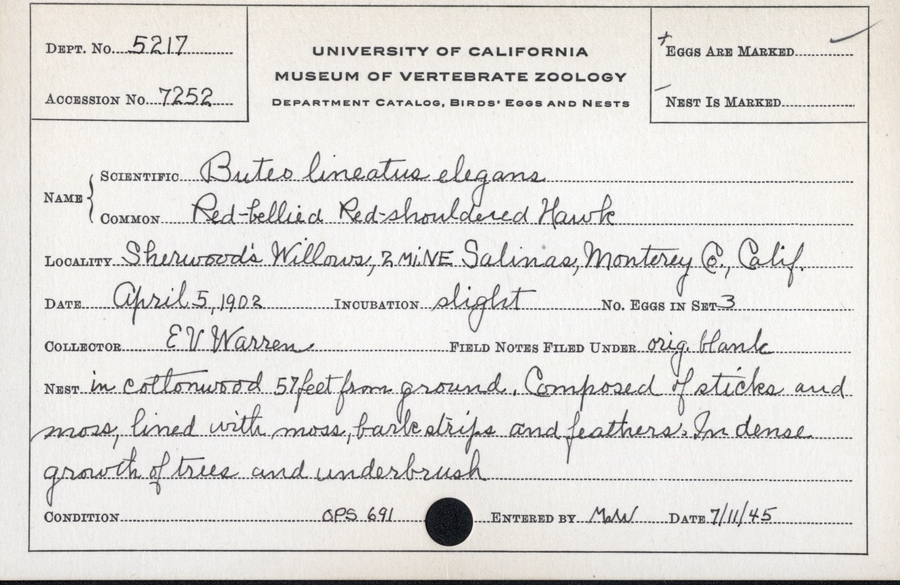 DEPT. NO. 5217
ACCESSION NO. 7252
UNIVERSITY OF CALIFORNIA
MUSEUM OF VERTEBRATE ZOOLOGY
DEPARTMENT CATALOG, BIRDS' EGGS AND NESTS
+ EGGS ARE MARKED ✓
– NEST IS MARKED
NAME
SCIENTIFIC Buteo lineatus elegans
COMMON Red-bellied Red-shouldered Hawk
LOCALITY Sherwood's Willows, 2 mi NE Salinas, Monterey C., Calif.
DATE April 5, 1902 INCUBATION slight NO. EGGS IN SET 3
COLLECTOR E V Warren FIELD NOTES FILED UNDER orig. blank
NEST in cottonwood 57 feet from ground. Composed of sticks and
moss, lined with moss, bark strips and feathers. In dense
growth of trees and underbrush
CONDITION OPS 691 ENTERED BY DATE 7/11/45